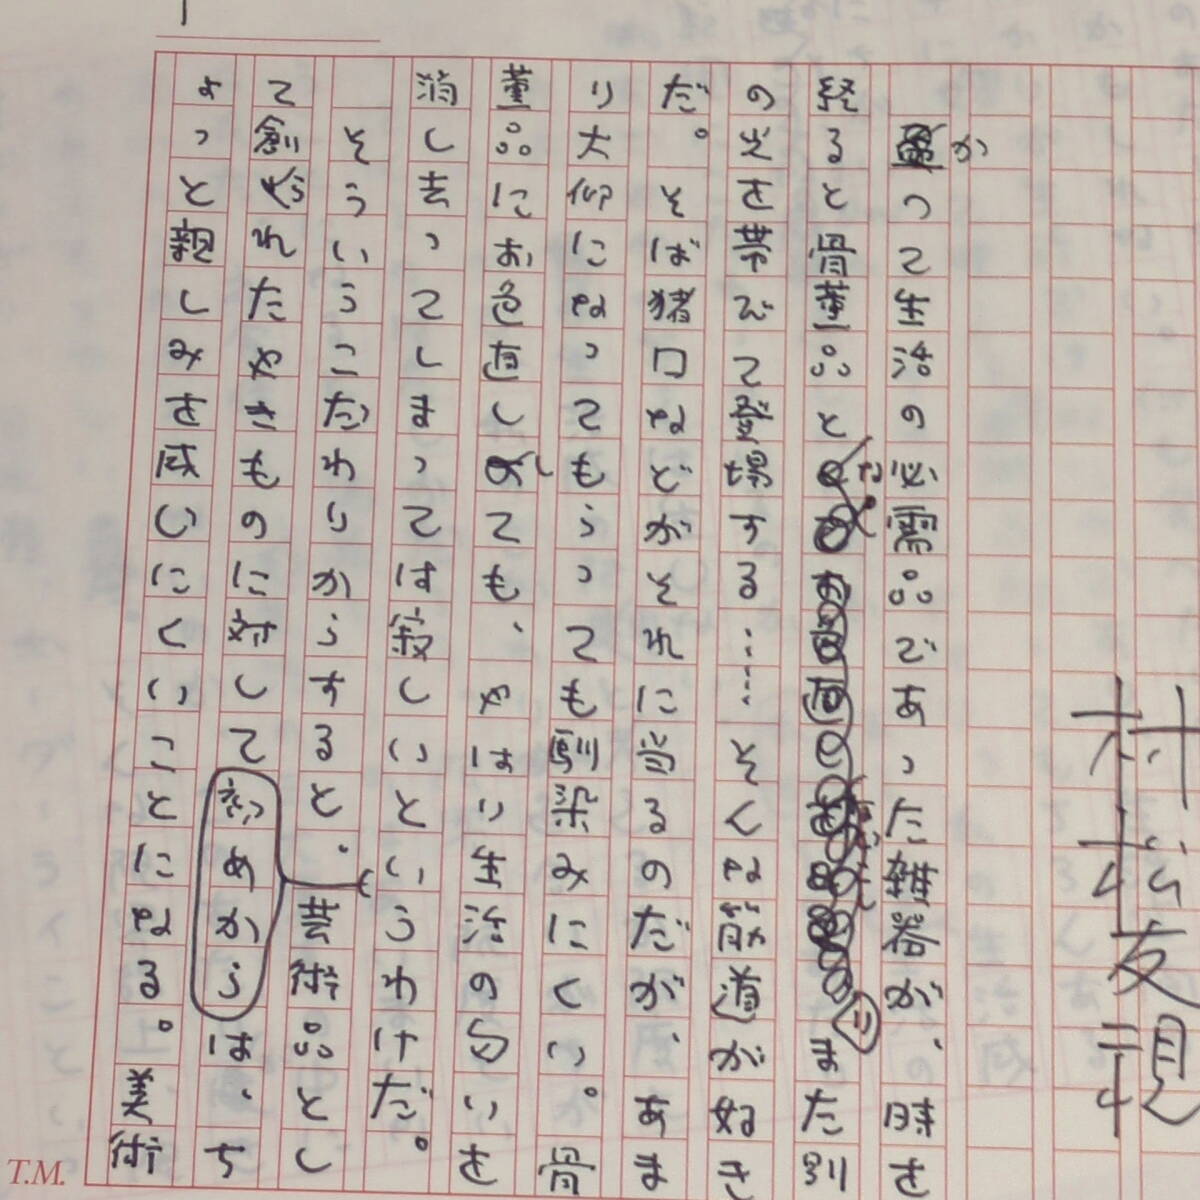 村松友視
かつて生活の必需品であった雑器が、時を
経ると骨董品となりまた別
の光を帯びて登場する……そんな筋道が好き
だ。そば猪口などがそれに当るのだが、あま
り大仰になってもらっても馴染みにくい。骨
董品にお色直ししても、やはり生活の匂いを
消し去ってしまっては寂しいというわけだ。
そういうこだわりからすると、芸術品とし
て創られたやきものに対して初めからは、ち
ょっと親しみを感じにくいことになる。美術
T.M.